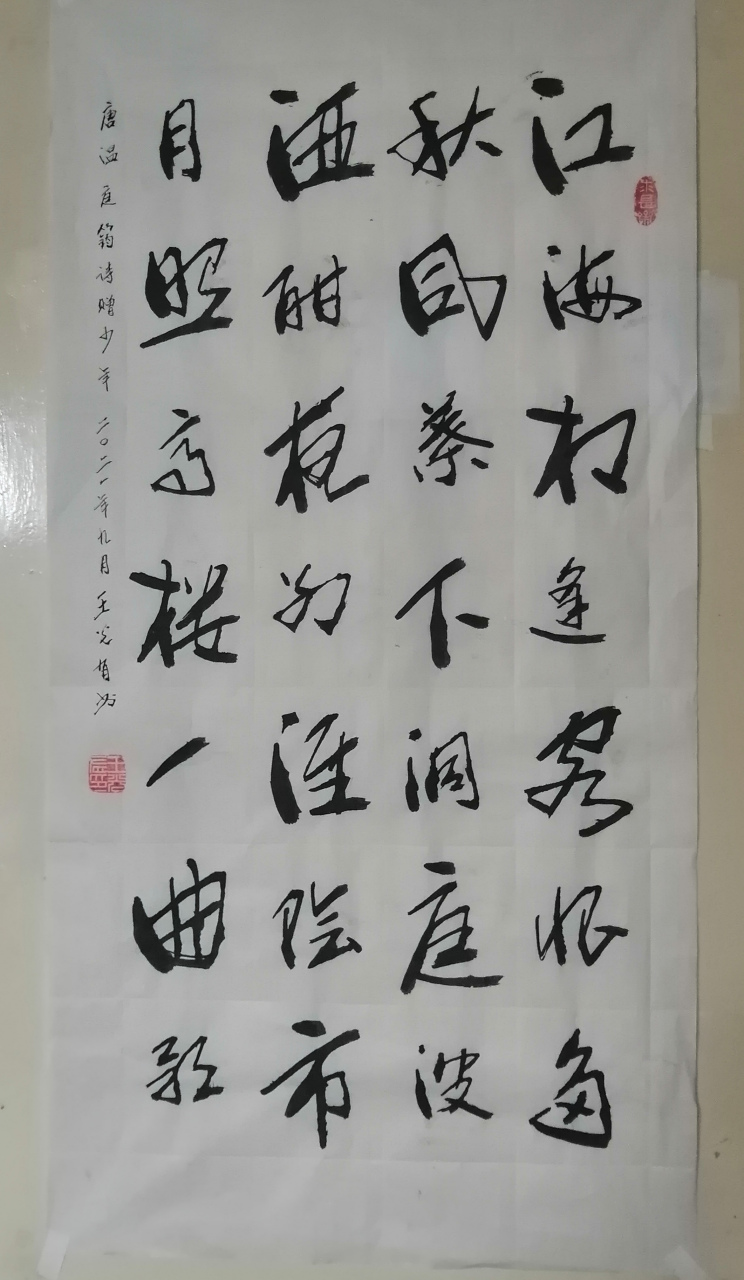 江海相逢客恨多
秋风葉下洞庭波
酒酣夜别淮阴市
月照高楼一曲歌
唐温庭筠诗赠少年 二〇二一年九月 王光